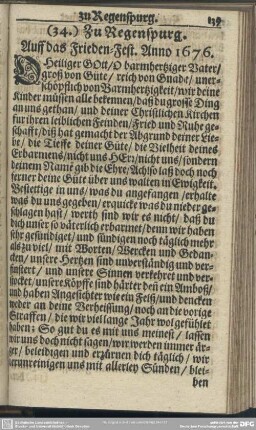 zu Regenspurg. 139
(34.) Zu Regenspurg.
Auff das Frieden-Fest. Anno 1676.
O Heiliger GOtt / O barmhertziger Vater /
groß von Güte / reich von Gnade / uner-
schöpflich von Barmhertzigkeit / wir deine
Kinder müssen alle bekennen / daß du grosse Ding
an uns gethan / und deiner Christlichen Kirchen
für ihren leiblichen Feinden / Fried und Ruhe ge-
schafft / diß hat gemacht der Abgrund deiner Lie-
be / die Tieffe deiner Güte / die Vielheit deines
Erbarmens / nicht uns HErr / nicht uns / sondern
deinem Namẽ gib die Ehre / Ach so laß doch noch
ferner deine Güte über uns walten in Ewigkeit.
Bestettige in uns / was du angefangen / erhalte
was du uns gegeben / erquicke was du nieder ge-
schlagen hast / werth sind wir es nicht / daß du
dich unser so väterlich erbarmet / denn wir haben
sehr gesündiget / und sündigen noch täglich mehr
als zu viel / mit Worten / Wercken und Gedan-
cken / unsere Hertzen sind unverständig und ver-
finstert / und unsere Sinnen verkehret und ver-
rücket / unsere Köpffe sind härter deñ ein Amboß /
und haben Angesichter wie ein Felß / und dencken
weder an deine Verheisung / noch an die vorige
Straffen / die wir viel lange Jahr wol gefühlet
haben; So gut du es mit uns meinest / lassen
wir uns doch nicht sagen / wir werden immer är-
ger / beleidigen und erzürnen dich täglich / wir
verunreinigen uns mit allerley Sünden / blei-
ben